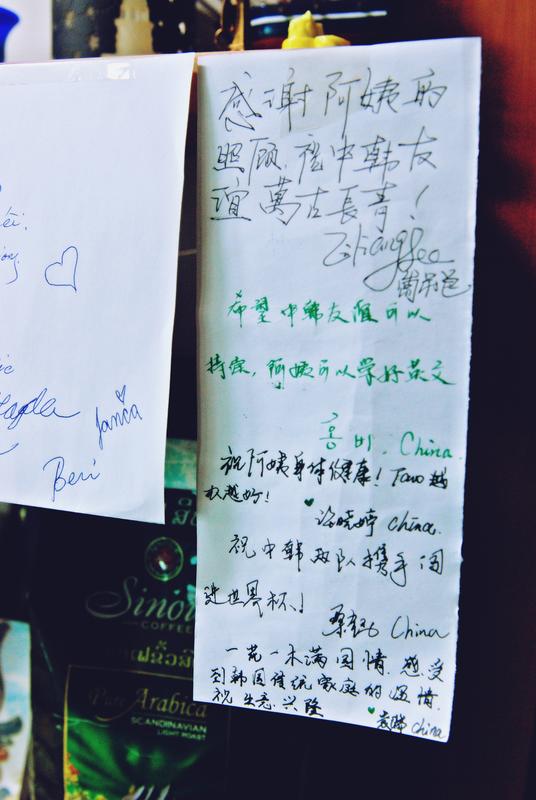 感谢阿姨的
照顾,祝中韩友
谊萬古長青!
希望中韩友谊可以
持续,阿姨可以学好英文
홍비. China.
祝阿姨身体健康! Tano 越
来越好!
许晓婷 China.
祝中韩双队携手闯
进世界杯!
China
一花一木满园情.感受
到韩国传统家庭的温情.
祝生意兴隆
China
Janča
Beri
Sino
COFFEE
Pure Arabica
SCANDINAVIAN
LIGHT ROAST